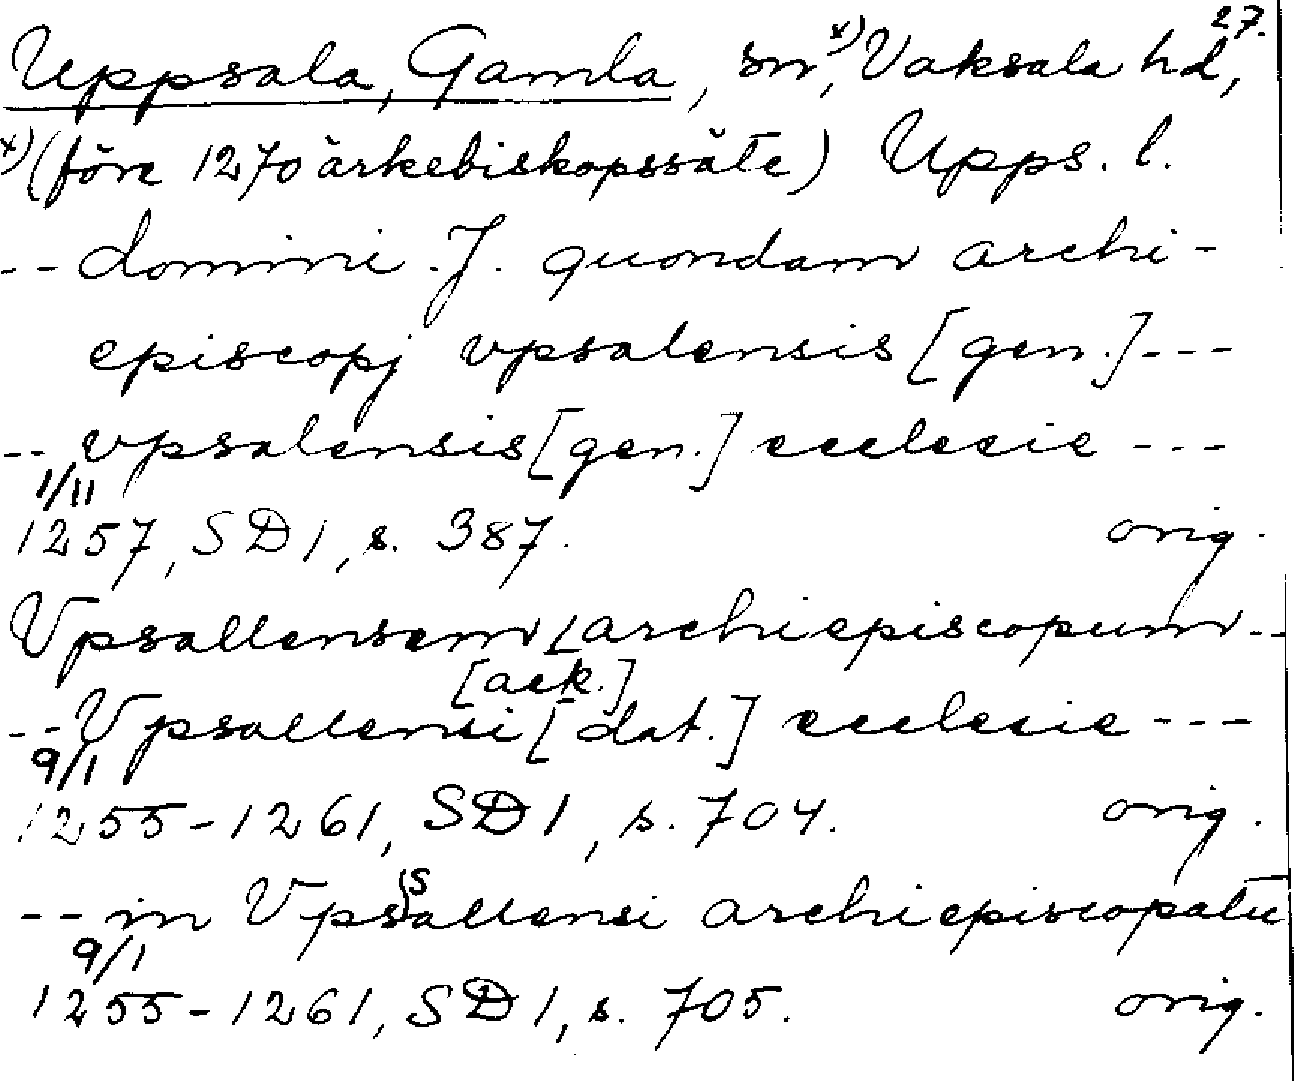 27.
Uppsala, Gamla, sn, x) Vaksala hd,
x) (före 1270 ärkebiskopssäte) Upps. l.
-- domini .J. quondam archi-
episcopj vpsalensis [gen.] ---
-- vpsalensis [gen.] ecclesie ---
1/11
1257, SD 1, s. 387. orig.
Vpsallensem [archiepiscopum --
[ack.]
-- Vpsallensi [dat.] ecclesie ---
9/1
1255-1261, SD 1, s. 704. orig.
s
-- in Vpsallensi archiepiscopatu
9/1
1255-1261, SD 1, s. 705. orig.